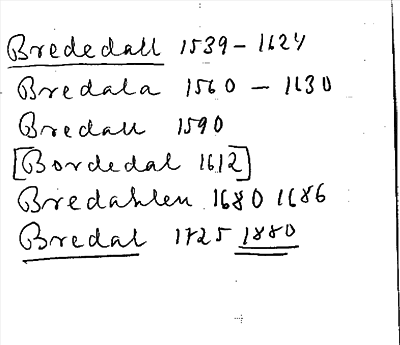 Brededall 1539-1624
Bredala 1560 - 1630
Bredall 1590
[Bordedal 1612]
Bredahlen 1680 1686
Bredal 1725 1880